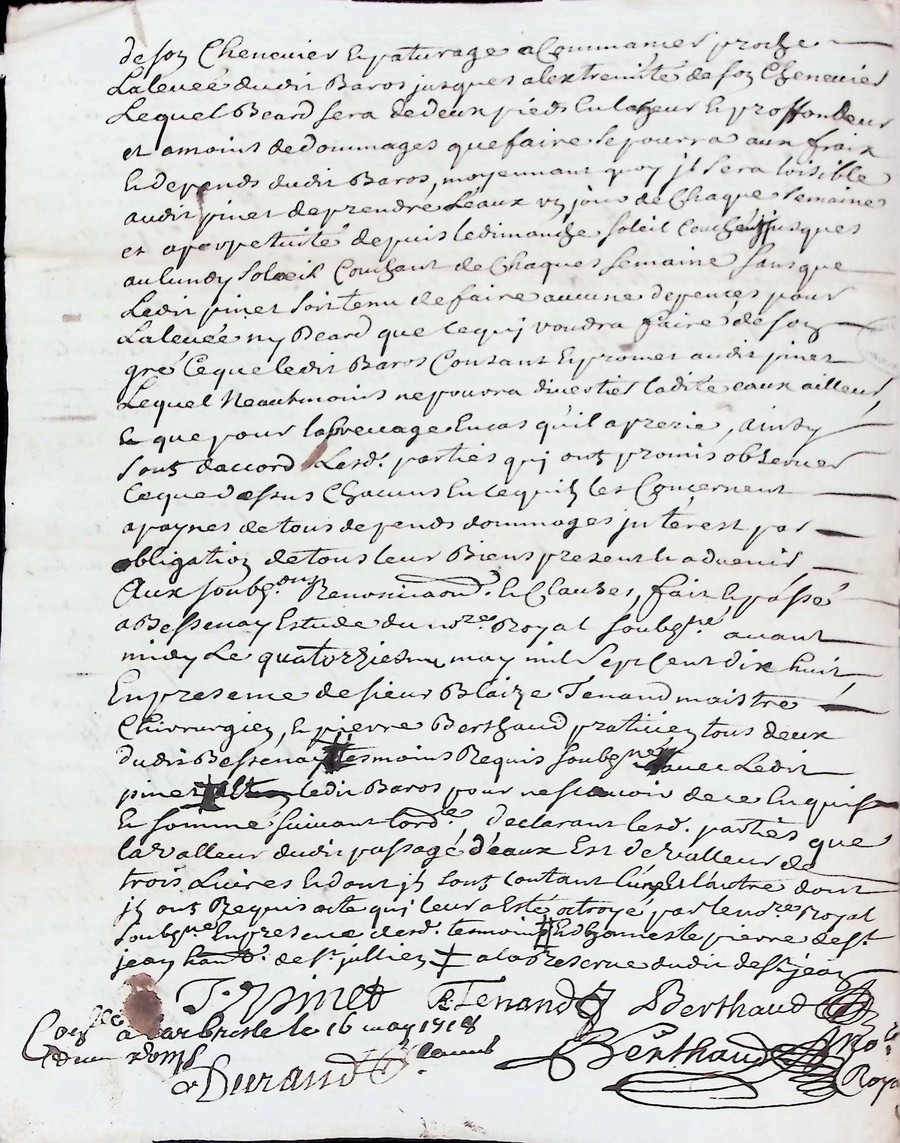 de son Chenevier et paturage a Commancer proche
La levée dudit Baros jusques a lextremité de son Chenevier
Lequel Beard sera de deux pieds en largeur et proffondeur
et a moins de dommages que faire se pourra aux fraix
et depends dudit Baros, moyennant quoy jl sera loisible
audit pinet de prendre Leaux un jour de Chaque semaine
et a perpetuité depuis le dimanche soleil Couchant jusques
au lundy soleil Couchant de Chaques semaine sans que
Ledit pinet soit tenu de faire aucune depences pour
La levée ny Beard que ce quj voudra faire de son
gré Ce que ledit Baros Consant et promet audit pinet
Lequel Neautmoins ne pourra divertier ladite eaux ailleur
et que pour labreuvage en cas qu'il aperie, ainsy
sont d'accord Lesd. parties quj ont promis observer
Ce que dessus Chacuns en ce quil les Concernent
a paynes de tous depends dommages jnterest par
obligation de tous leur Biens present et advenir
Aux soubgons Renonciaon. et Clauzes, fait et passé
a Bessenay Estude du nore Royal soubgné, avant
midy Le quatorziesme may mil sept Cent dix huit
En presence de sieur Blaize Tenand maistre
Chirurgien, et pierre Berthaud praticien tous deux
dudit Bessenay tesmoins Requis soubgnes avec Ledit
pinet ledit Baros pour ne scavoir de ce Enquis
et sommé suivant lorde, declarant lesd. parties que
la valleur dudit passage d'eaux Est de valleur de
trois Livres et dont jls sont Contant l'un et l'autre dont
jls ont Requis acte quj leur a Esté octroyé par le nore Royal
soubgne En presence desd. tesmoins et d'honneste pierre de st
jean de st jullien a la Reserve dudit de st jean
J. pinet B. Tenand Berthaud
Conllé a Larbresle le 16 may 1718
Durand Berthaud no.re
Royal